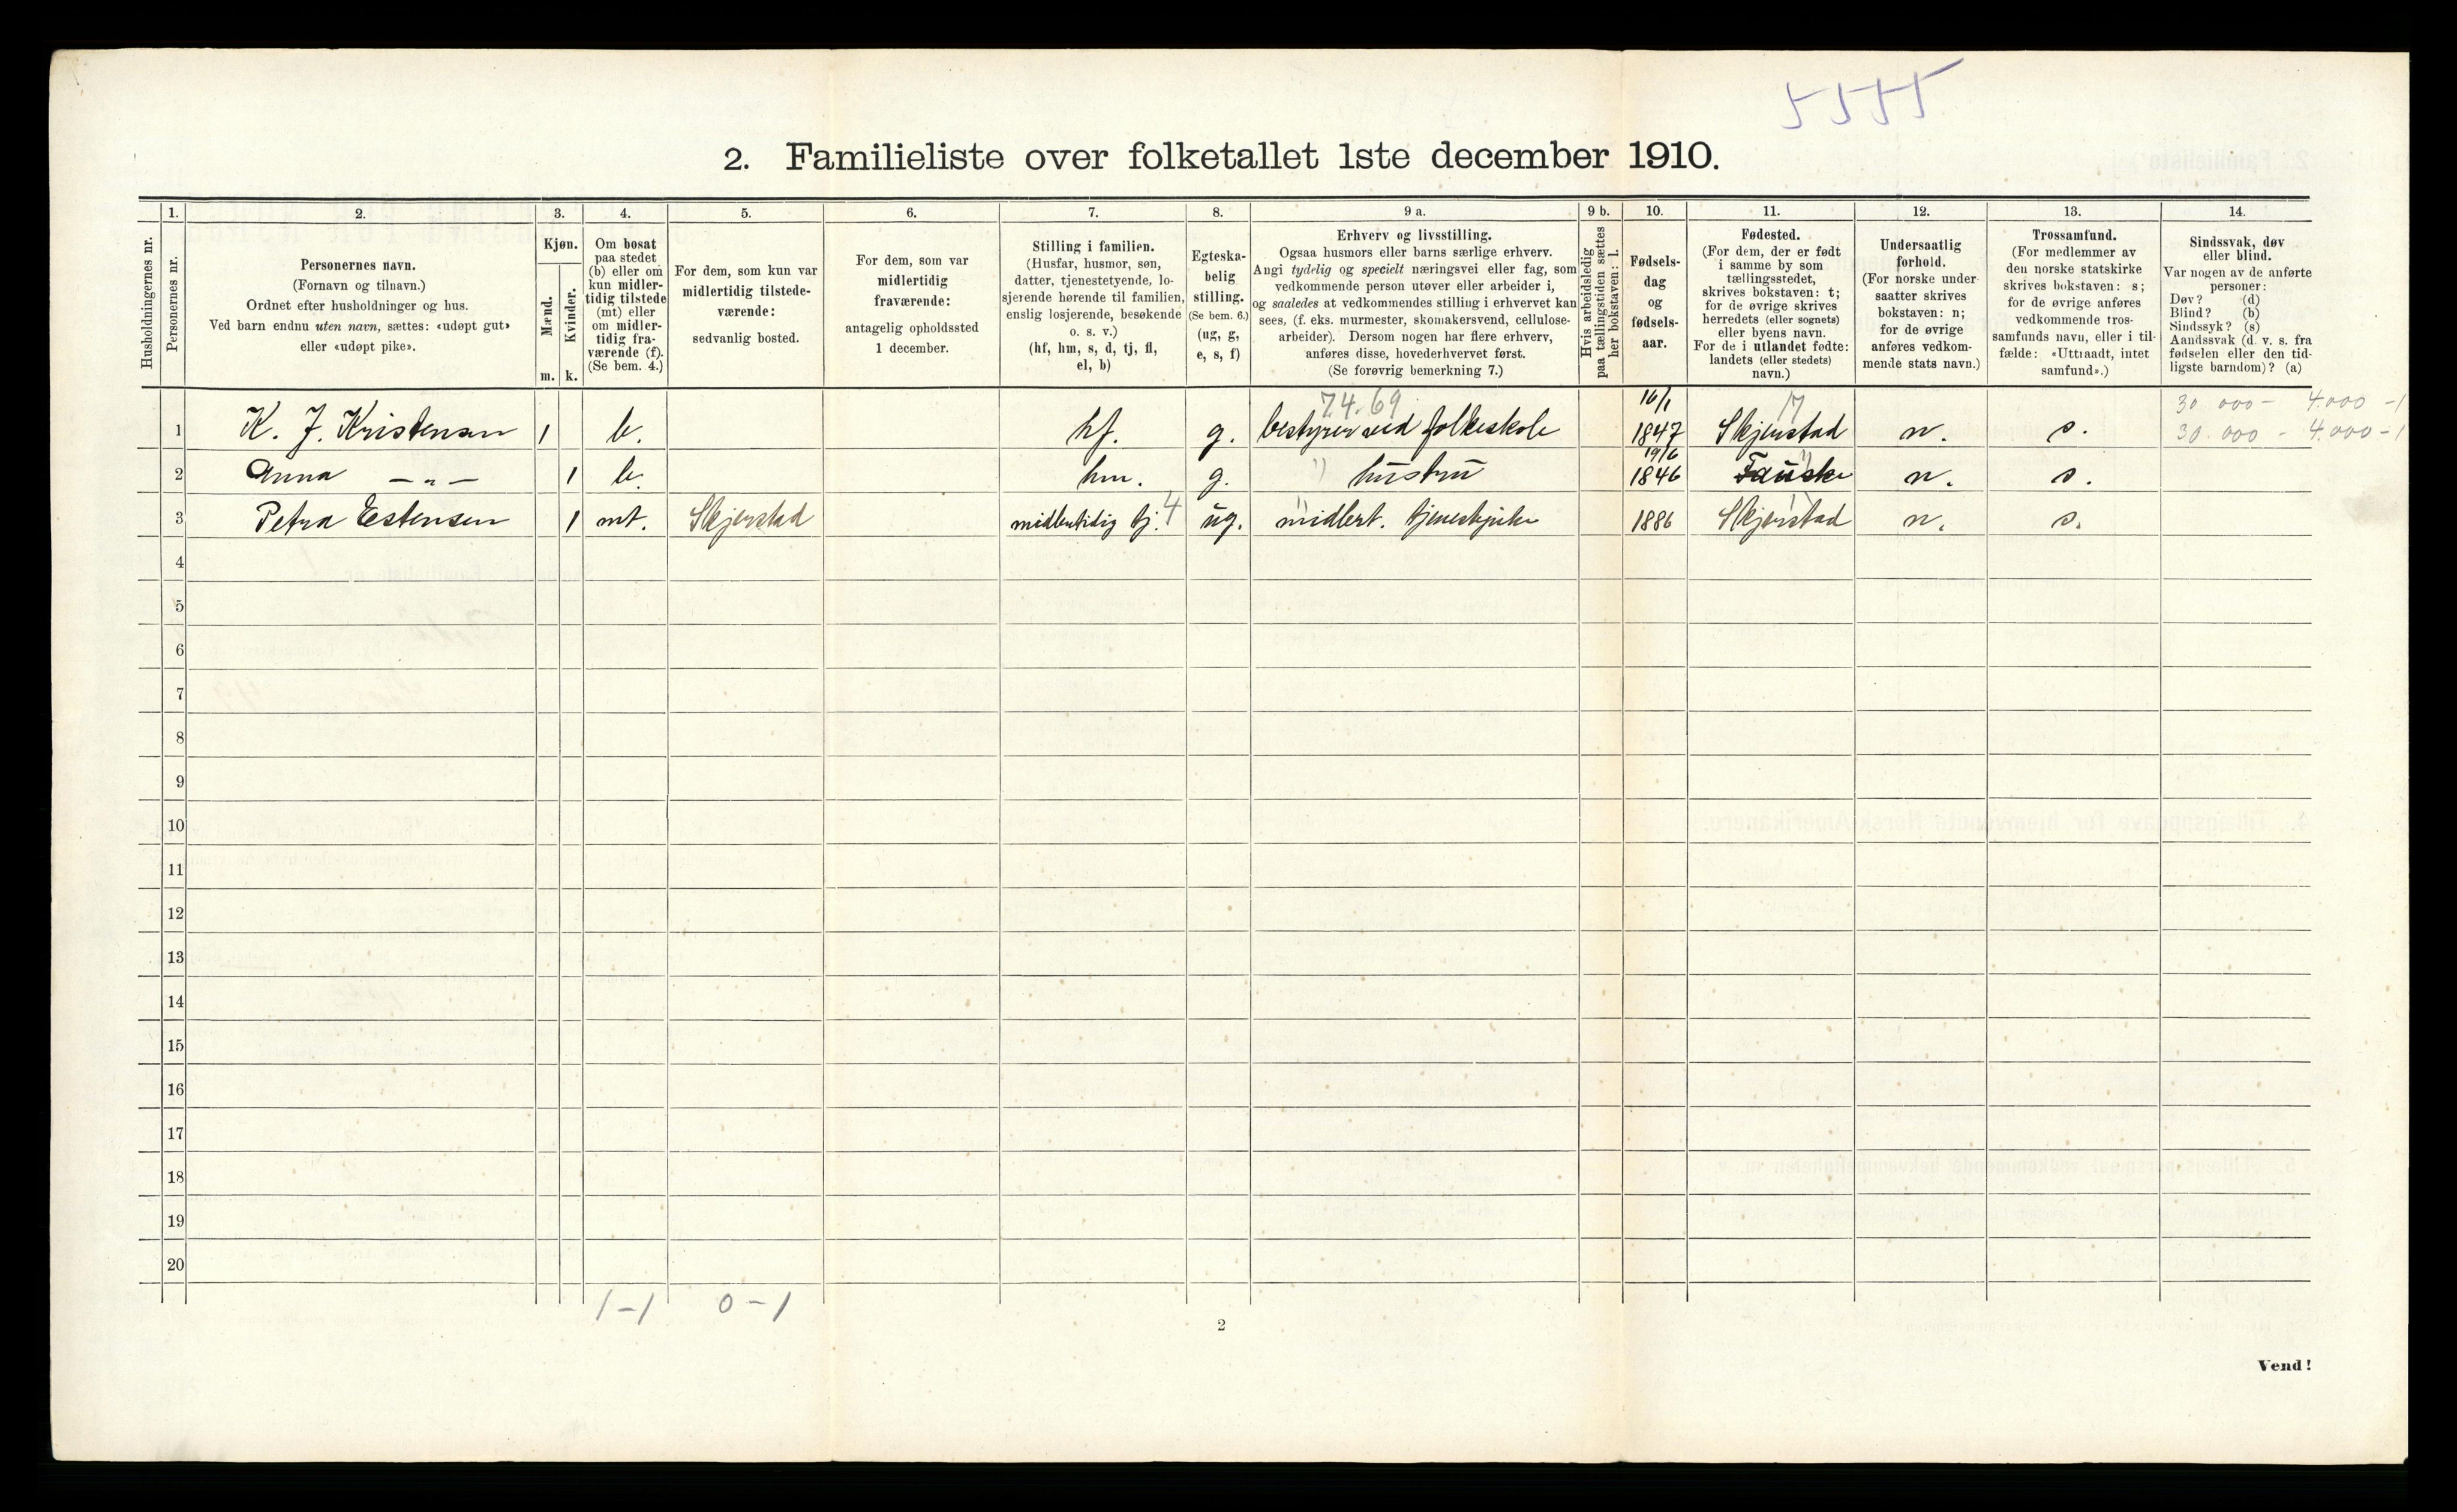 5555
2. Familieliste over folketallet 1ste december 1910.
Husholdningernes nr.
1.
Personernes nr.
2.
Personernes navn.
(Fornavn og tilnavn.)
Ordnet efter husholdninger og hus.
Ved barn endnu uten navn, sættes: «udøpt gut»
eller «udøpt pike».
3.
Kjøn.
Mænd.
Kvinder.
m. k.
4.
Om bosat
paa stedet
(b) eller om
kun midler-
tidig tilstede
(mt) eller
om midler-
tidig fra-
værende (f).
(Se bem. 4.)
5.
For dem, som kun var
midlertidig tilstede-
værende:
sedvanlig bosted.
6.
For dem, som var
midlertidig
fraværende:
antagelig opholdssted
1 december.
7.
Stilling i familien.
(Husfar, husmor, søn,
datter, tjenestetyende, lo-
sjerende hørende til familien,
enslig losjerende, besøkende
o. s. v.)
(hf, hm, s, d, tj, fl,
el, b)
8.
Egteska-
belig
stilling.
(Se bem. 6.)
(ug, g,
e, s, f)
9 a.
Erhverv og livsstilling.
Ogsaa husmors eller barns særlige erhverv.
Angi tydelig og specielt næringsvei eller fag, som
vedkommende person utøver eller arbeider i,
og saaledes at vedkommendes stilling i erhvervet kan
sees, (f. eks. murmester, skomakersvend, cellulose-
arbeider). Dersom nogen har flere erhverv,
anføres disse, hovederhvervet først.
(Se forøvrig bemerkning 7.)
9 b.
Hvis arbeidsledig
paa tællingstiden sættes
her bokstaven: l.
10.
Fødsels-
dag
og
fødsels-
aar.
11.
Fødested.
(For dem, der er født
i samme by som
tællingsstedet,
skrives bokstaven: t;
for de øvrige skrives
herredets (eller sognets)
eller byens navn.
For de i utlandet fødte:
landets (eller stedets)
navn.)
12.
Undersaatlig
forhold.
(For norske under-
saatter skrives
bokstaven: n;
for de øvrige
anføres vedkom-
mende stats navn.)
13.
Trossamfund.
(For medlemmer av
den norske statskirke
skrives bokstaven: s;
for de øvrige anføres
vedkommende tros-
samfunds navn, eller i til-
fælde: «Uttraadt, intet
samfund».)
14.
Sindssvak, døv
eller blind.
Var nogen av de anførte
personer:
Døv? (d)
Blind? (b)
Sindssyk? (s)
Aandssvak (d. v. s. fra
fødselen eller den tid-
ligste barndom)? (a)
74.69 16/1 17 30 000 - 4.000 - 1
1 K. J. Kristensen 1 b. hf. g. bestyrer ved folkeskole 1847 Skjerstad n. s. 30.000 - 4.000 - 1
19/6
2 Anna — „ — 1 b. hm. g. " hustru 1846 Fauske n. s.
3 Petra Estensen 1 mt. Skjerstad midlertidig tj. 4 ug. " midlert. tjenestpike 1886 Skjerstad n. s.
4
5
6
7
8
9
10
11
12
13
14
15
16
17
18
19
20
1 - 1 0 - 1
2
Vend!